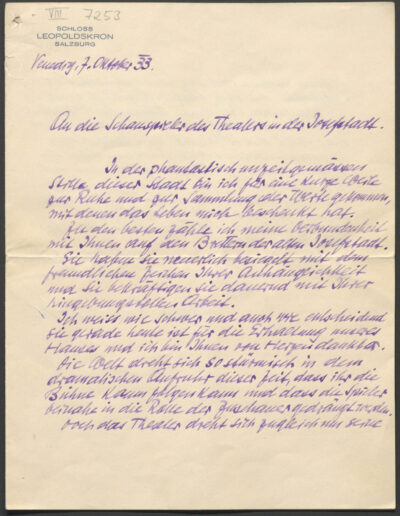 VIII 7253
SCHLOSS
LEOPOLDSKRON
SALZBURG
Venedig, 7. Oktober 33.
An die Schauspieler des Theaters in der Josefstadt.
In der phantastisch unzeitgemässen
Stille dieser Stadt bin ich für eine kurze Weile
zur Ruhe und zur Sammlung der Werte gekommen,
mit denen das Leben mich beschenkt hat.
Zu den besten zähle ich meine Verbundenheit
mit Ihnen auf den Brettern der alten Josefstadt.
Sie haben sie neuerlich besiegelt mit dem
freundlichen Zeichen Ihrer Anhänglichkeit
und Sie bekräftigen sie dauernd mit Ihrer
hingebungsvollen Arbeit.
Ich weiss wie schwer und auch wie entscheidend
sie gerade heute ist für die Erhaltung unseres
Hauses und ich bin Ihnen von Herzen dankbar.
Die Welt dreht sich so stürmisch in dem
dramatischen Aufruhr dieser Zeit, dass ihr die
Bühne kaum folgen kann und dass die Spieler
beinahe in die Rolle der Zuschauer gedrängt werden.
Doch das Theater dreht sich zugleich um seine